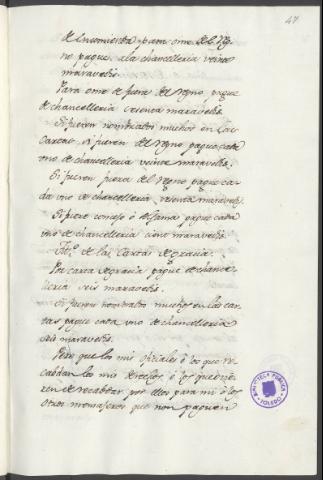 47
de Encomienda para ome del Rey-
no pague a la chancelleria veinte
maravedis.
Para ome de fuera del regno pague
de chancelleria sesenta maravedis.
Si fueren nombrados muchos en las
Cartas, si fueren del regno pague cada
uno de chancelleria veinte maravedis.
Si fueren fuera del regno pague ca-
da uno de chancelleria, sesenta maravedis.
Si fuere concejo ó aljama pague cada
uno de chancelleria cient maravedis.
Tit.º de las Cartas de gracia.
Por carta de gracia pague de chance-
lleria seis maravedis.
Si fueren nombrados muchos en las car-
tas pague cada uno de chancelleria
seis maravedis.
Pero que los mis oficiales ó los que re-
cabdan los mis derechos, ó los que ovie-
ren de recabdar por ellos para mi ó los
otros mensageros que non paguen
BIBLIOTECA PUBLICA
TOLEDO